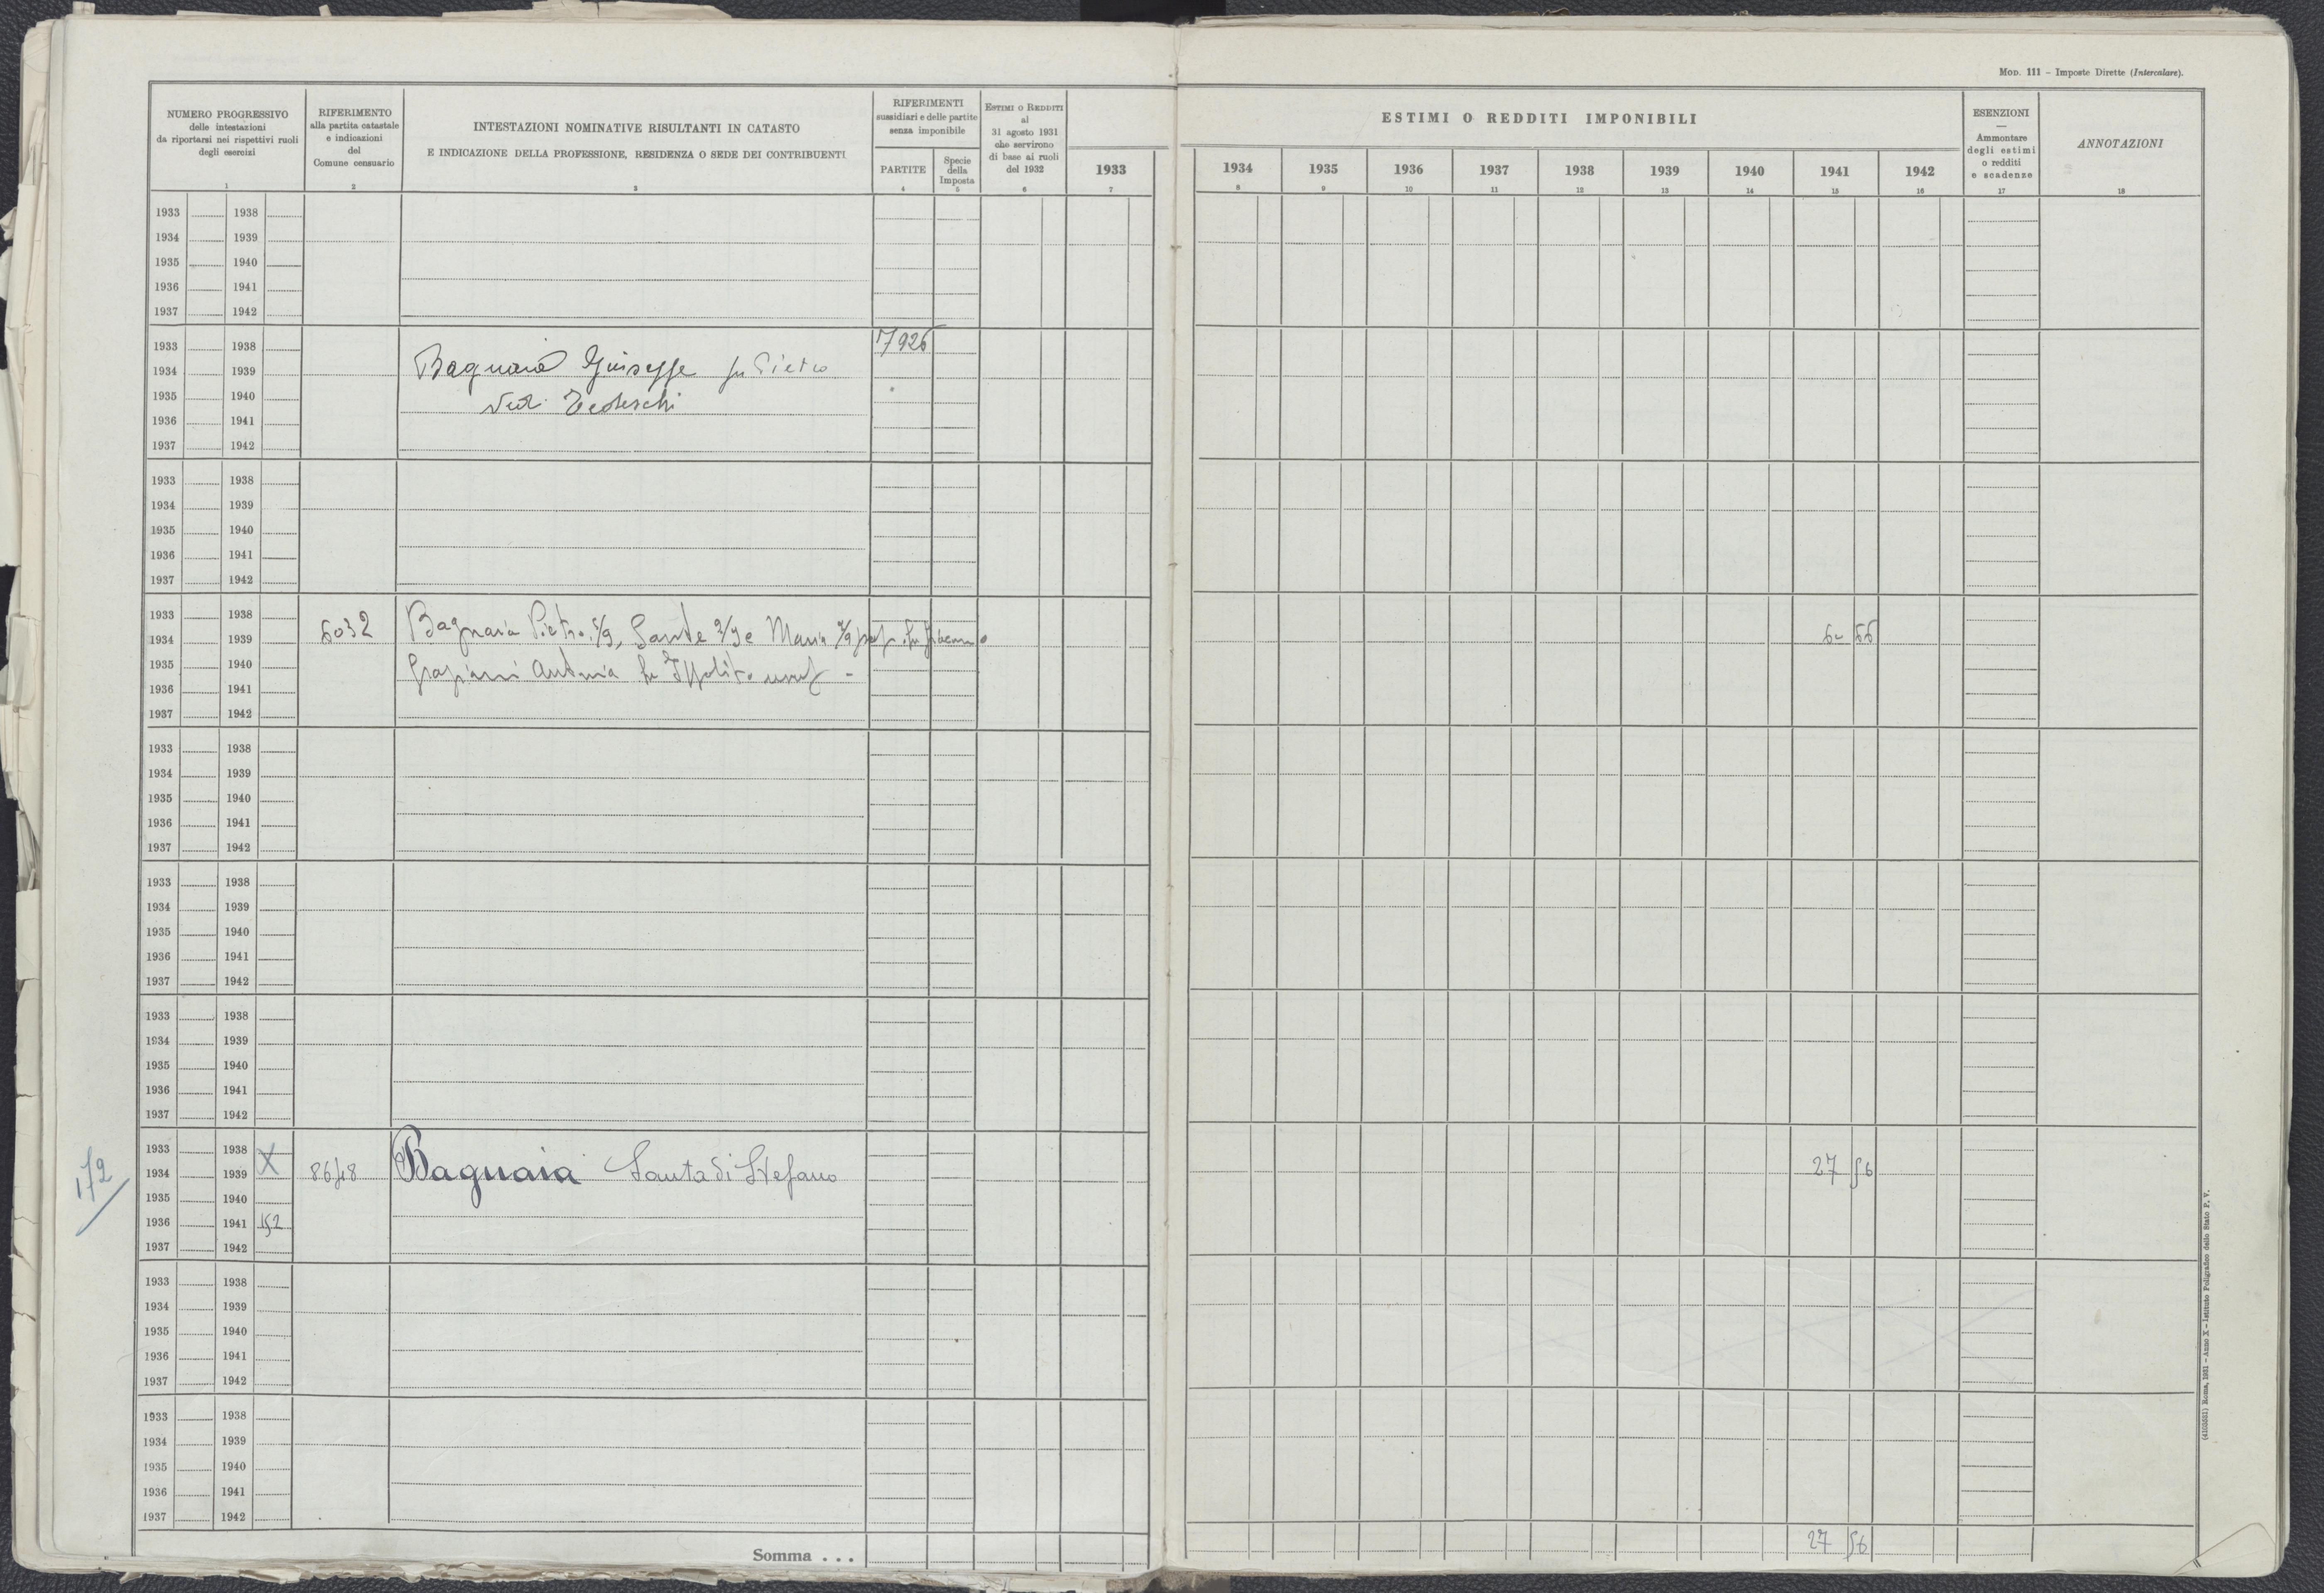 MOD. 111 - Imposte Dirette (Intercalare).
NUMERO PROGRESSIVO
delle intestazioni
da riportarsi nei rispettivi ruoli
degli esercizi
1
RIFERIMENTO
alla partita catastale
e indicazioni
del
Comune censuario
2
INTESTAZIONI NOMINATIVE RISULTANTI IN CATASTO
E INDICAZIONE DELLA PROFESSIONE, RESIDENZA O SEDE DEI CONTRIBUENTI
3
RIFERIMENTI
sussidiari e delle partite
senza imponibile
PARTITE
4
Specie
della
Imposta
5
ESTIMI O REDDITI
al
31 agosto 1931
che servirono
di base ai ruoli
del 1932
6
1933
7
ESTIMI O REDDITI IMPONIBILI
1934 1935 1936 1937 1938 1939 1940 1941 1942
8 9 10 11 12 13 14 15 16
ESENZIONI
—
Ammontare
degli estimi
o redditi
e scadenze
17
ANNOTAZIONI
18
1933 1938
1934 1939
1935 1940
1936 1941
1937 1942
1933 1938 7926
1934 1939 Bagnaia Giuseppe fu Pietro
1935 1940 Ved. Tedeschi
1936 1941
1937 1942
1933 1938
1934 1939
1935 1940
1936 1941
1937 1942
1933 1938
1934 1939 6032 Bagnaia Pietro 5/9, Sante 2/9 e Maria 2/9 fu Giacomo
1935 1940 Graziani Antonia fu Ippolito usuf -
1936 1941
1937 1942
1933 1938
1934 1939
1935 1940
1936 1941
1937 1942
1933 1938
1934 1939
1935 1940
1936 1941
1937 1942
1933 1938
1934 1939
1935 1940
1936 1941
1937 1942
1933 1938 X
1934 1939 8648 Bagnaia Santa di Stefano 27 56
1935 1940
1936 1941 152
1937 1942
172
1933 1938
1934 1939
1935 1940
1936 1941
1937 1942
1933 1938
1934 1939
1935 1940
1936 1941
1937 1942
Somma . . . 27 56
(4103561) Roma, 1931 - Anno X - Istituto Poligrafico dello Stato P. V.